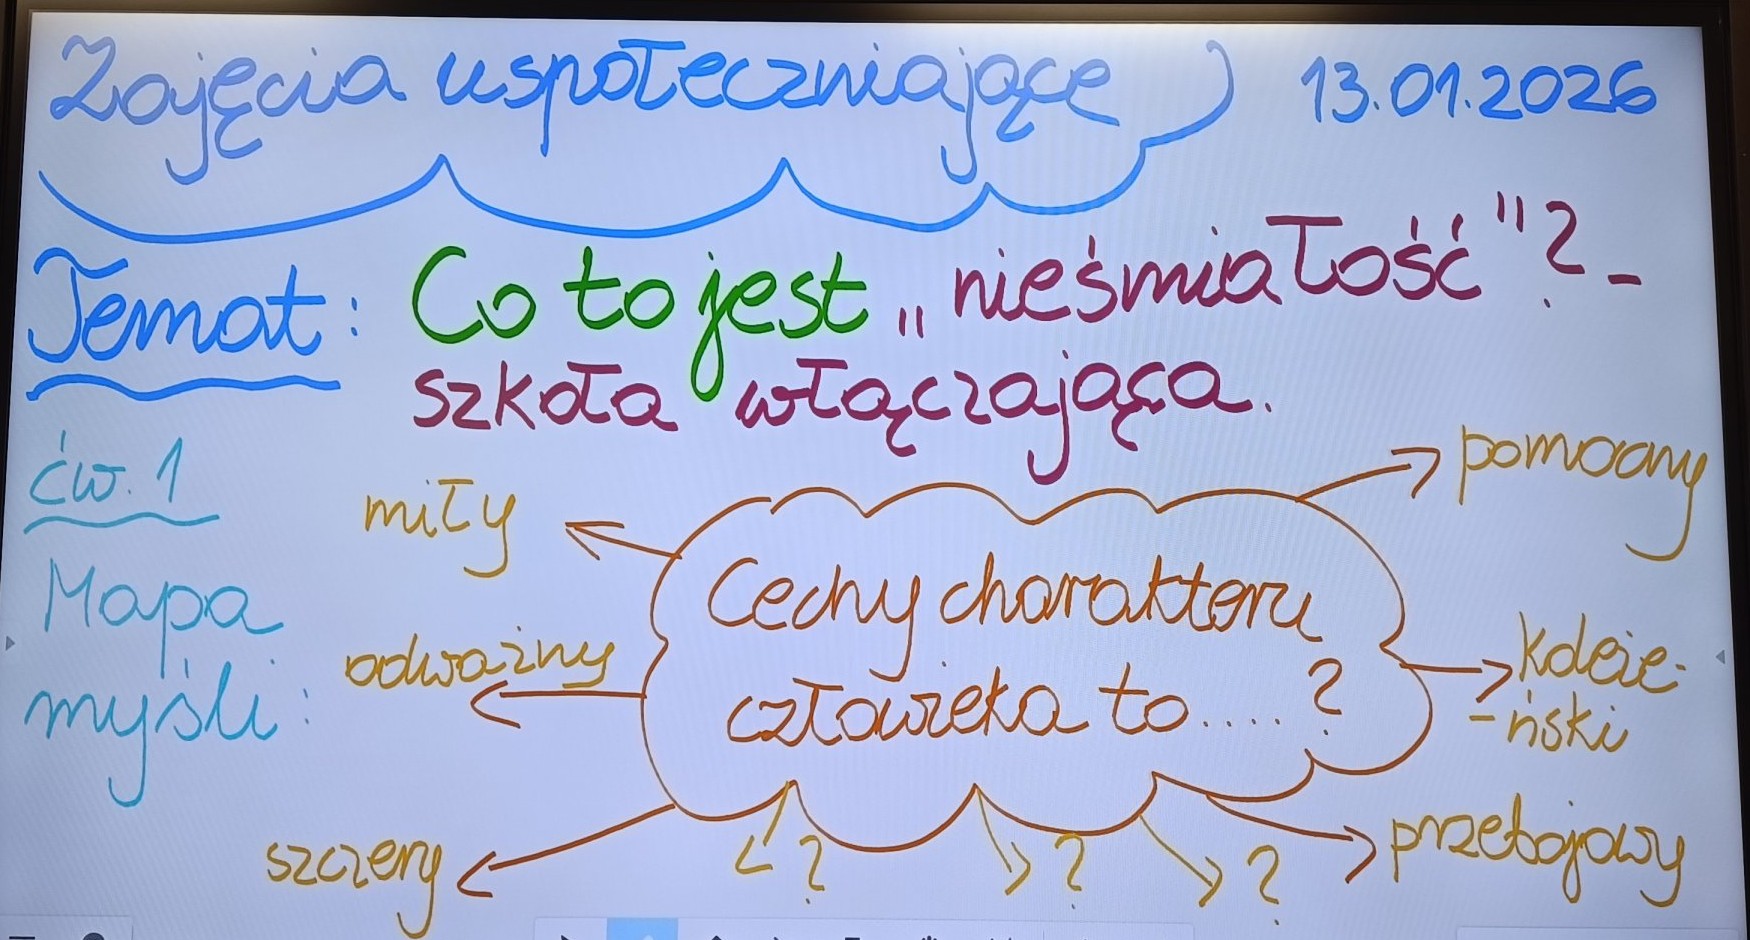 Zajęcia uspołeczniające 13.01.2026
Temat: Co to jest „nieśmiałość"? -
szkoła włączająca.
ćw. 1
Mapa
myśli:
Cechy charakteru
człowieka to....?
miły
odważny
szczery
?
?
?
pomocny
koleże-
-ński
przebojowy